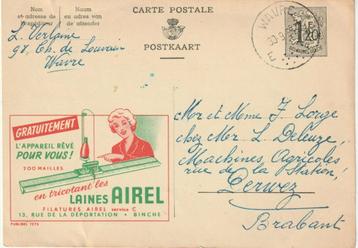 Nom
et adresse de
l'expéditeur
Naam
en adres van
de afzender
CARTE POSTALE
POSTKAART
WAVRE
1 F 20
L. Verlame
98 Ch. de Louvain
Wavre
GRATUITEMENT
L'APPAREIL RÊVÉ
POUR VOUS!
200 MAILLES
en tricotant les
LAINES AIREL
FILATURES AIREL service C
13, RUE DE LA DÉPORTATION • BINCHE
PUBLIBEL 1275
Mr et Mme J. Lorge
chez Mr L. Deleuze,
Machines Agricoles
rue de la Station,
Perwez
Brabant